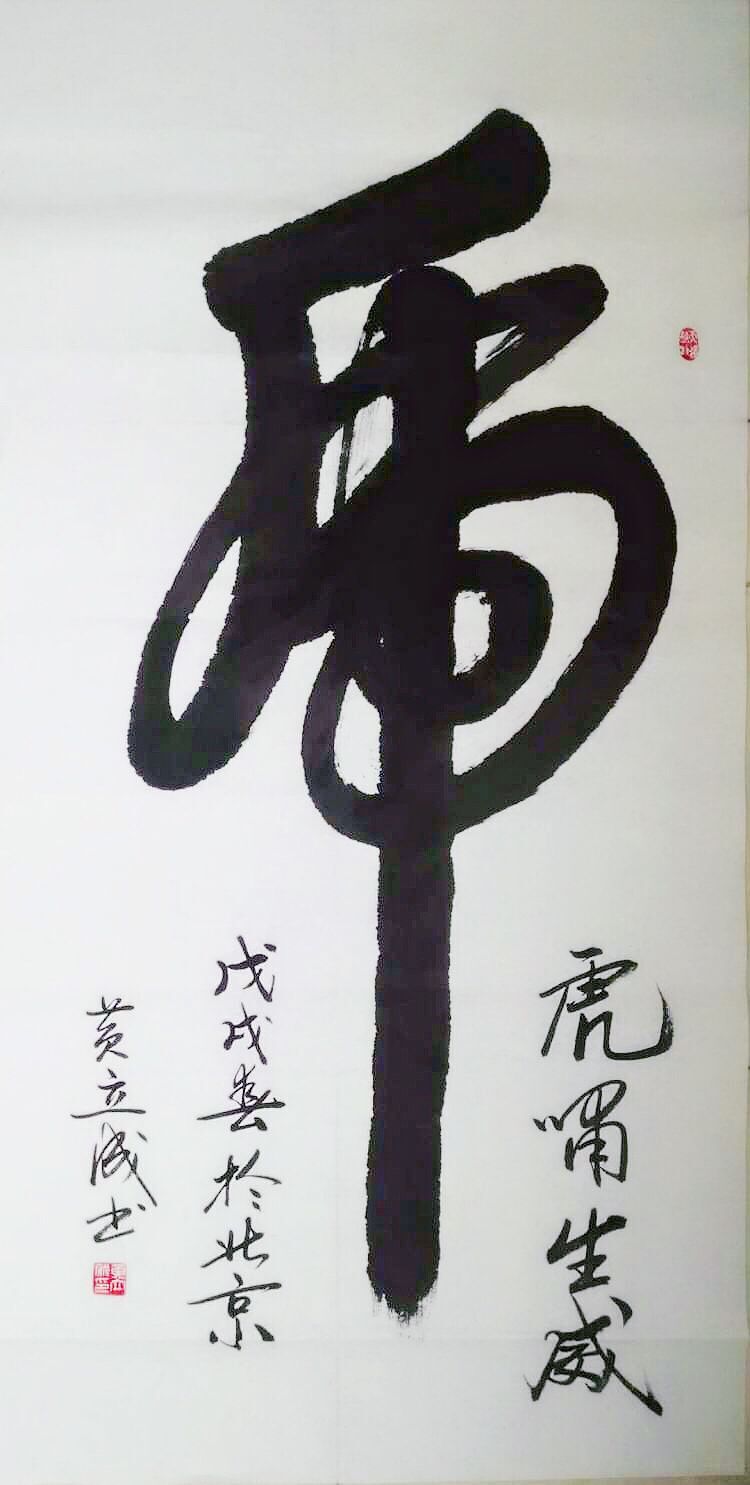 虎
虎啸生威
戊戌春於北京
黄立成书